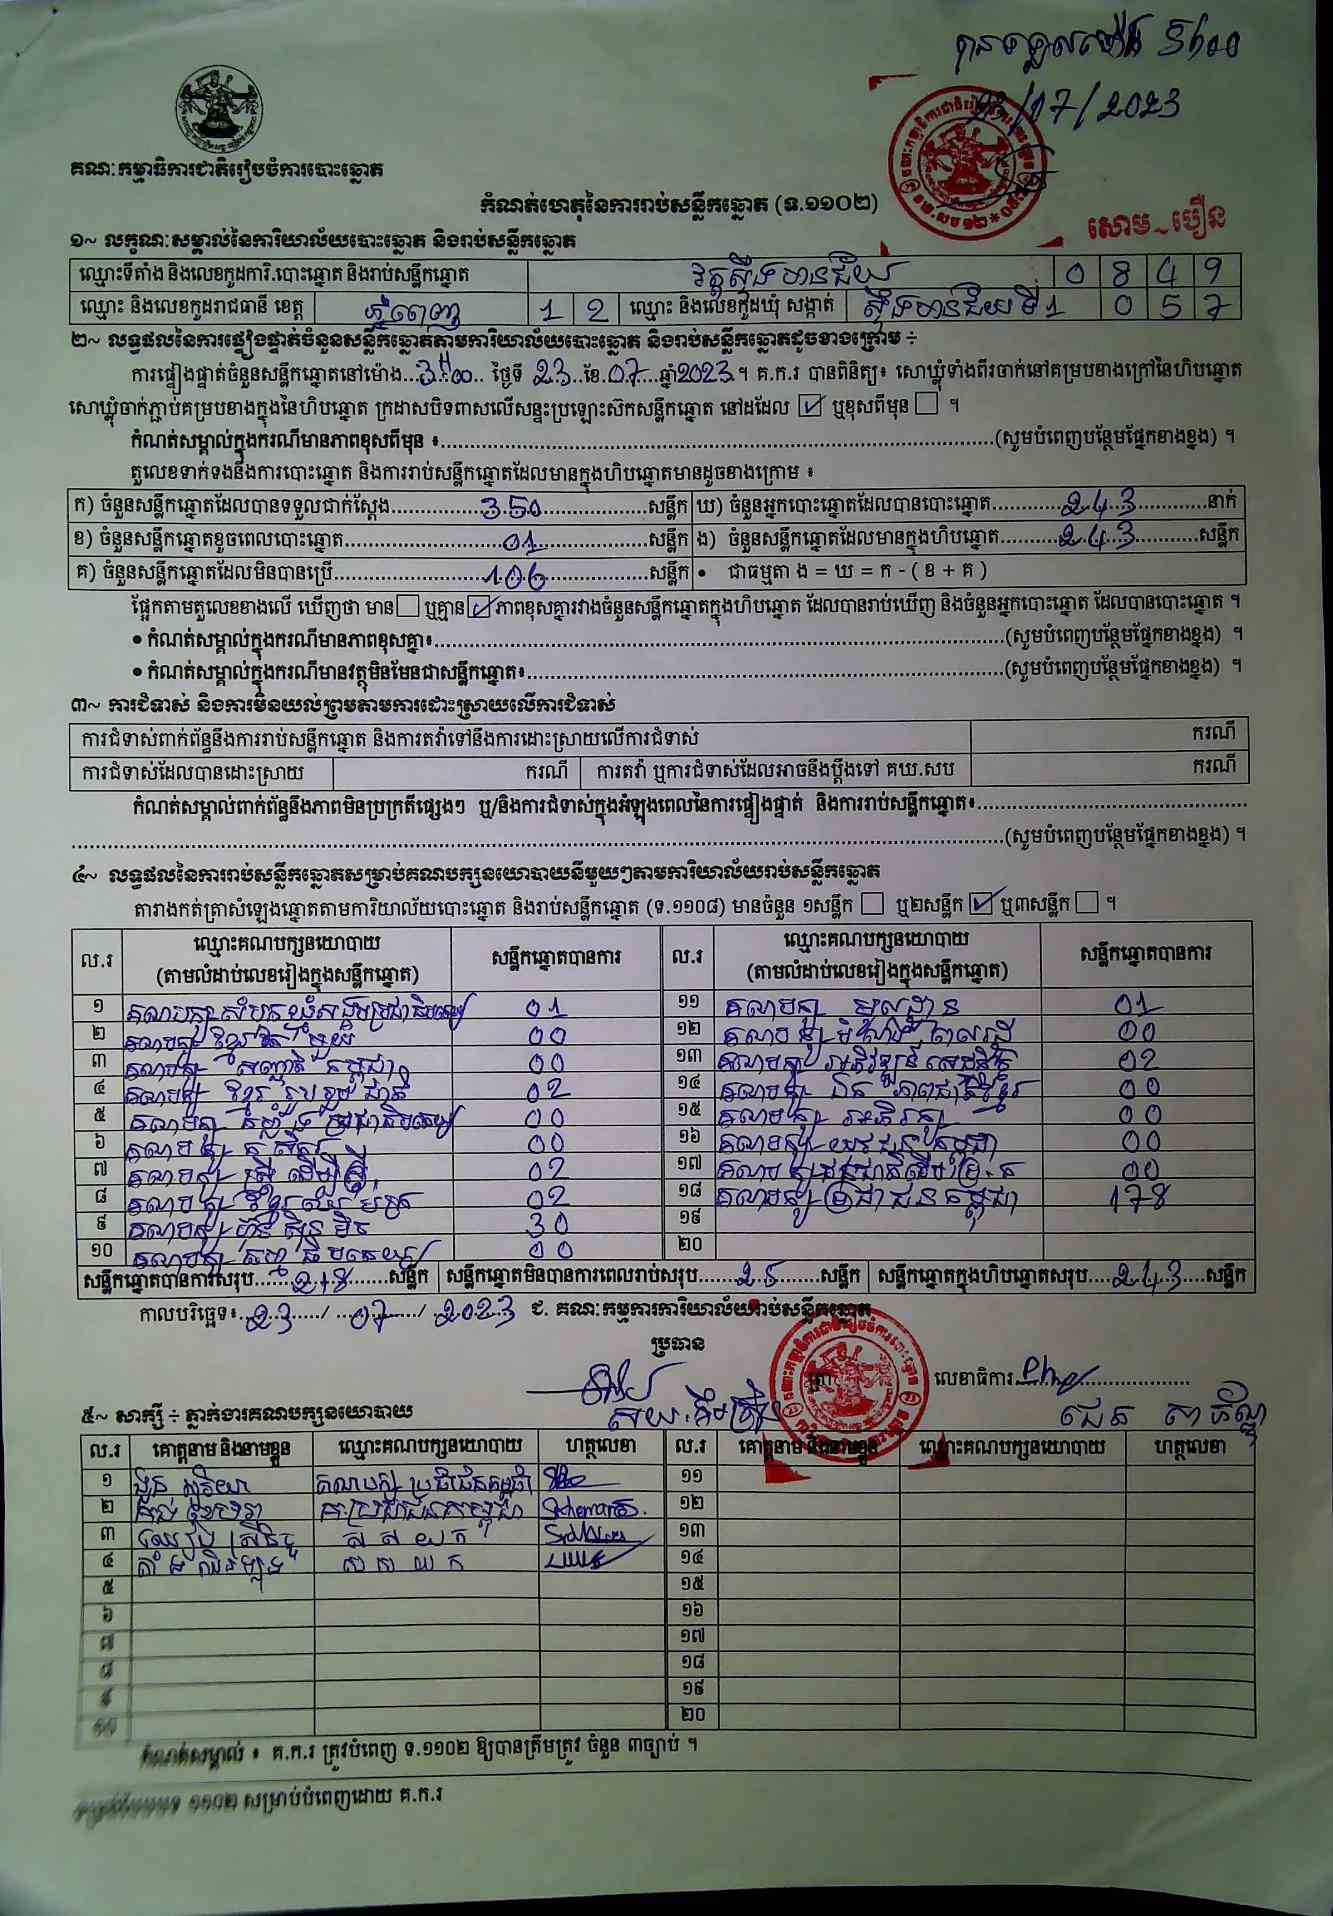 23/07/2023
គណៈកម្មាធិការជាតិរៀបចំការបោះឆ្នោត
កំណត់ហេតុនៃការរាប់សន្លឹកឆ្នោត (ទ.១១០២)
សោម ~ បឿន
១~ លក្ខណៈសម្គាល់នៃការិយាល័យបោះឆ្នោត និងរាប់សន្លឹកឆ្នោត
ឈ្មោះទីតាំង និងលេខកូដការិ.បោះឆ្នោត និងរាប់សន្លឹកឆ្នោត វត្តស្ទឹងមានជ័យ 0 8 4 9
ឈ្មោះ និងលេខកូដរាជធានី ខេត្ត ភ្នំពេញ 1 2 ឈ្មោះ និងលេខកូដឃុំ សង្កាត់ ស្ទឹងមានជ័យទី1 0 5 7
២~ លទ្ធផលនៃការផ្ទៀងផ្ទាត់ចំនួនសន្លឹកឆ្នោតតាមការិយាល័យបោះឆ្នោត និងរាប់សន្លឹកឆ្នោតដូចខាងក្រោម ÷
ការផ្ទៀងផ្ទាត់ចំនួនសន្លឹកឆ្នោតនៅម៉ោង...3:00.. ថ្ងៃទី 23..ខែ.07.....ឆ្នាំ2023.។ គ.ក.រ បានពិនិត្យ៖ សោឃ្លុំទាំងពីរចាក់នៅគម្របខាងក្រៅនៃហិបឆ្នោត
សោឃ្លុំចាក់ភ្ជាប់គម្របខាងក្នុងនៃហិបឆ្នោត ក្រដាសបិទពាសលើសន្ទះប្រឡោះស៊កសន្លឹកឆ្នោត នៅដដែល ☑ ឬខុសពីមុន ☐ ។
កំណត់សម្គាល់ក្នុងករណីមានភាពខុសពីមុន ៖..........(សូមបំពេញបន្ថែមផ្នែកខាងខ្នង) ។
តួលេខទាក់ទងនឹងការបោះឆ្នោត និងការរាប់សន្លឹកឆ្នោតដែលមានក្នុងហិបឆ្នោតមានដូចខាងក្រោម ៖
ក) ចំនួនសន្លឹកឆ្នោតដែលបានទទួលជាក់ស្តែង......350......សន្លឹក ឃ) ចំនួនអ្នកបោះឆ្នោតដែលបានបោះឆ្នោត......243......នាក់
ខ) ចំនួនសន្លឹកឆ្នោតខូចពេលបោះឆ្នោត......01......សន្លឹក ង) ចំនួនសន្លឹកឆ្នោតដែលមានក្នុងហិបឆ្នោត......243......សន្លឹក
គ) ចំនួនសន្លឹកឆ្នោតដែលមិនបានប្រើ......106......សន្លឹក • ជាធម្មតា ង = ឃ = ក - ( ខ + គ )
ផ្អែកតាមតួលេខខាងលើ ឃើញថា មាន ☐ ឬគ្មាន ☑ ភាពខុសគ្នារវាងចំនួនសន្លឹកឆ្នោតក្នុងហិបឆ្នោត ដែលបានរាប់ឃើញ និងចំនួនអ្នកបោះឆ្នោត ដែលបានបោះឆ្នោត ។
• កំណត់សម្គាល់ក្នុងករណីមានភាពខុសគ្នា៖..........(សូមបំពេញបន្ថែមផ្នែកខាងខ្នង) ។
• កំណត់សម្គាល់ក្នុងករណីមានវត្ថុមិនមែនជាសន្លឹកឆ្នោត៖..........(សូមបំពេញបន្ថែមផ្នែកខាងខ្នង) ។
៣~ ការជំទាស់ និងការមិនយល់ព្រមតាមការដោះស្រាយលើការជំទាស់
ការជំទាស់ពាក់ព័ន្ធនឹងការរាប់សន្លឹកឆ្នោត និងការតវ៉ាទៅនឹងការដោះស្រាយលើការជំទាស់ ករណី
ការជំទាស់ដែលបានដោះស្រាយ ករណី ការតវ៉ា ឬការជំទាស់ដែលអាចនឹងប្តឹងទៅ គឃ.សប ករណី
កំណត់សម្គាល់ពាក់ព័ន្ធនឹងភាពមិនប្រក្រតីផ្សេងៗ ឬ/និងការជំទាស់ក្នុងអំឡុងពេលនៃការផ្ទៀងផ្ទាត់ និងការរាប់សន្លឹកឆ្នោត៖..........
..........(សូមបំពេញបន្ថែមផ្នែកខាងខ្នង) ។
៤~ លទ្ធផលនៃការរាប់សន្លឹកឆ្នោតសម្រាប់គណបក្សនយោបាយនីមួយៗតាមការិយាល័យរាប់សន្លឹកឆ្នោត
តារាងកត់ត្រាសំឡេងឆ្នោតតាមការិយាល័យបោះឆ្នោត និងរាប់សន្លឹកឆ្នោត (ទ.១១០៨) មានចំនួន ១សន្លឹក ☐ ឬ២សន្លឹក ☑ ឬ៣សន្លឹក ☐ ។
ល.រ ឈ្មោះគណបក្សនយោបាយ (តាមលំដាប់លេខរៀងក្នុងសន្លឹកឆ្នោត) សន្លឹកឆ្នោតបានការ ល.រ ឈ្មោះគណបក្សនយោបាយ (តាមលំដាប់លេខរៀងក្នុងសន្លឹកឆ្នោត) សន្លឹកឆ្នោតបានការ
១ គណបក្ស សំបុកឃ្មុំសង្គមប្រជាធិបតេយ្យ 01 ១១ គណបក្ស មូលដ្ឋាន 01
២ គណបក្ស ខ្មែរតែមួយ 00 ១២ គណបក្ស 00
៣ គណបក្ស សញ្ជាតិកម្ពុជា 00 ១៣ គណបក្ស អភិវឌ្ឍន៍សេដ្ឋកិច្ច 02
៤ គណបក្ស ខ្មែររួបរួមជាតិ 02 ១៤ គណបក្ស ឯកភាពជាតិខ្មែរ 00
៥ គណបក្ស កម្លាំងប្រជាធិបតេយ្យ 00 ១៥ គណបក្ស 00
៦ គណបក្ស កសិករ 00 ១៦ គណបក្ស យុវជនកម្ពុជា 00
៧ គណបក្ស ស្ត្រីដើម្បីស្ត្រី 02 ១៧ គណបក្ស 00
៨ គណបក្ស ខ្មែរ 02 ១៨ គណបក្ស ប្រជាជនកម្ពុជា 178
៩ គណបក្ស ហ៊្វុនស៊ិនប៉ិច 30 ១៩
១០ គណបក្ស ធម្មាធិបតេយ្យ 00 ២០
សន្លឹកឆ្នោតបានការសរុប......218......សន្លឹក សន្លឹកឆ្នោតមិនបានការពេលរាប់សរុប......25......សន្លឹក សន្លឹកឆ្នោតក្នុងហិបឆ្នោតសរុប....243...សន្លឹក
កាលបរិច្ឆេទ៖...23..../...07..../ 2023 ជ. គណៈកម្មការការិយាល័យរាប់សន្លឹកឆ្នោត
ប្រធាន
លេខាធិការ
៥~ សាក្សី ÷ ភ្នាក់ងារគណបក្សនយោបាយ
ល.រ គោត្តនាម និងនាមខ្លួន ឈ្មោះគណបក្សនយោបាយ ហត្ថលេខា ល.រ គោត្តនាម និងនាមខ្លួន ឈ្មោះគណបក្សនយោបាយ ហត្ថលេខា
១ គណបក្ស ប្រជាជនកម្ពុជា ១១
២ គ.ប្រជាជនកម្ពុជា ១២
៣ ស ស យ ក ១៣
៤ ស ស យ ក ១៤
៥ ១៥
៦ ១៦
៧ ១៧
៨ ១៨
៩ ១៩
១០ ២០
កំណត់សម្គាល់ ៖ គ.ក.រ ត្រូវបំពេញ ទ.១១០២ ឱ្យបានត្រឹមត្រូវ ចំនួន ៣ច្បាប់ ។
១១០២ សម្រាប់បំពេញដោយ គ.ក.រ